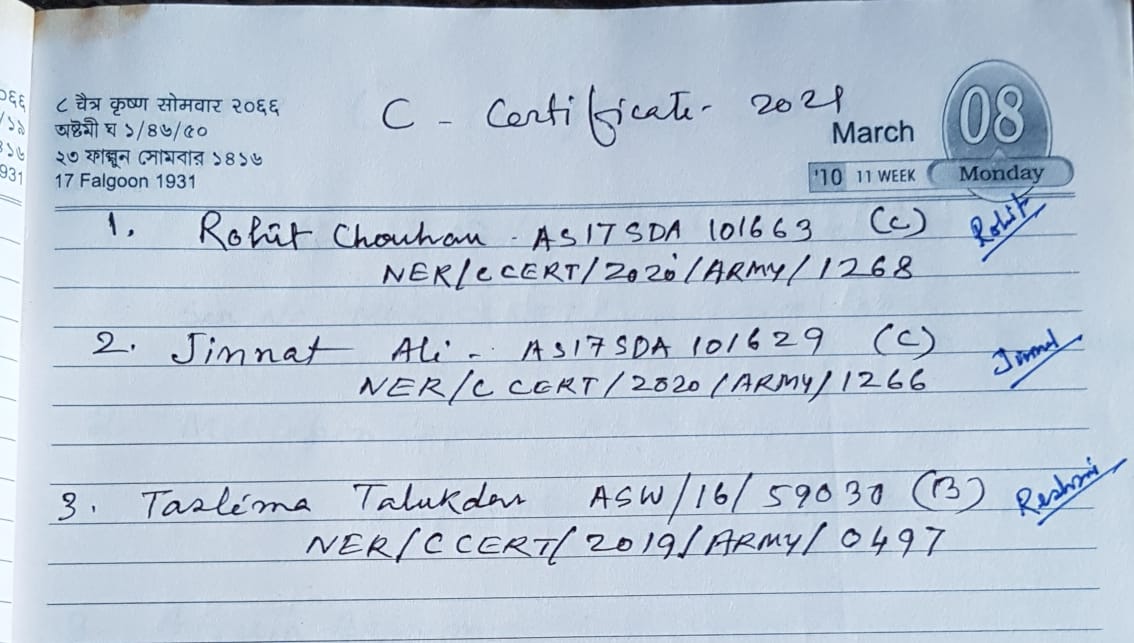 ८ चैत्र कृष्ण सोमवार २०६६
अष्टमी घ १/४७/५०
২৩ ফাল্গুন সোমবার ১৪১৬
17 Falgoon 1931
C - Certificate - 2021
March 08
'10 11 WEEK Monday
1. Rohit Chouhan - AS17SDA 101663 (C) Rohit
NER/CCERT/2020/ARMY/1268
2. Jinnat Ali - AS17SDA 101629 (C) Jinnat
NER/C CERT/2020/ARMY/1266
3. Taslima Talukdar ASW/16/59030 (B) Reshmi
NER/C CERT/2019/ARMY/0497
931